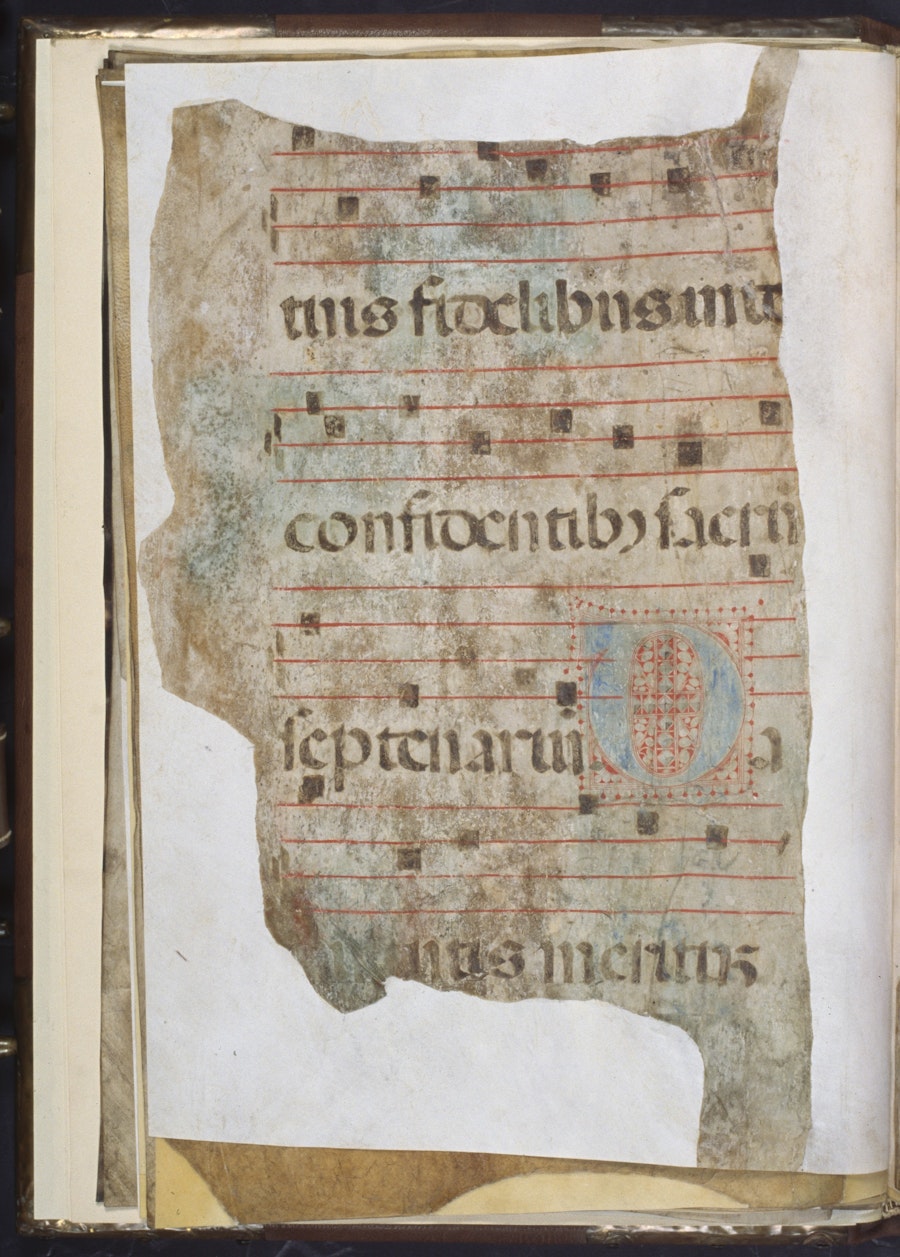 tuis fidelibus in t
confidentibꝫ sacru
septenariū Da
utis merituꝫ